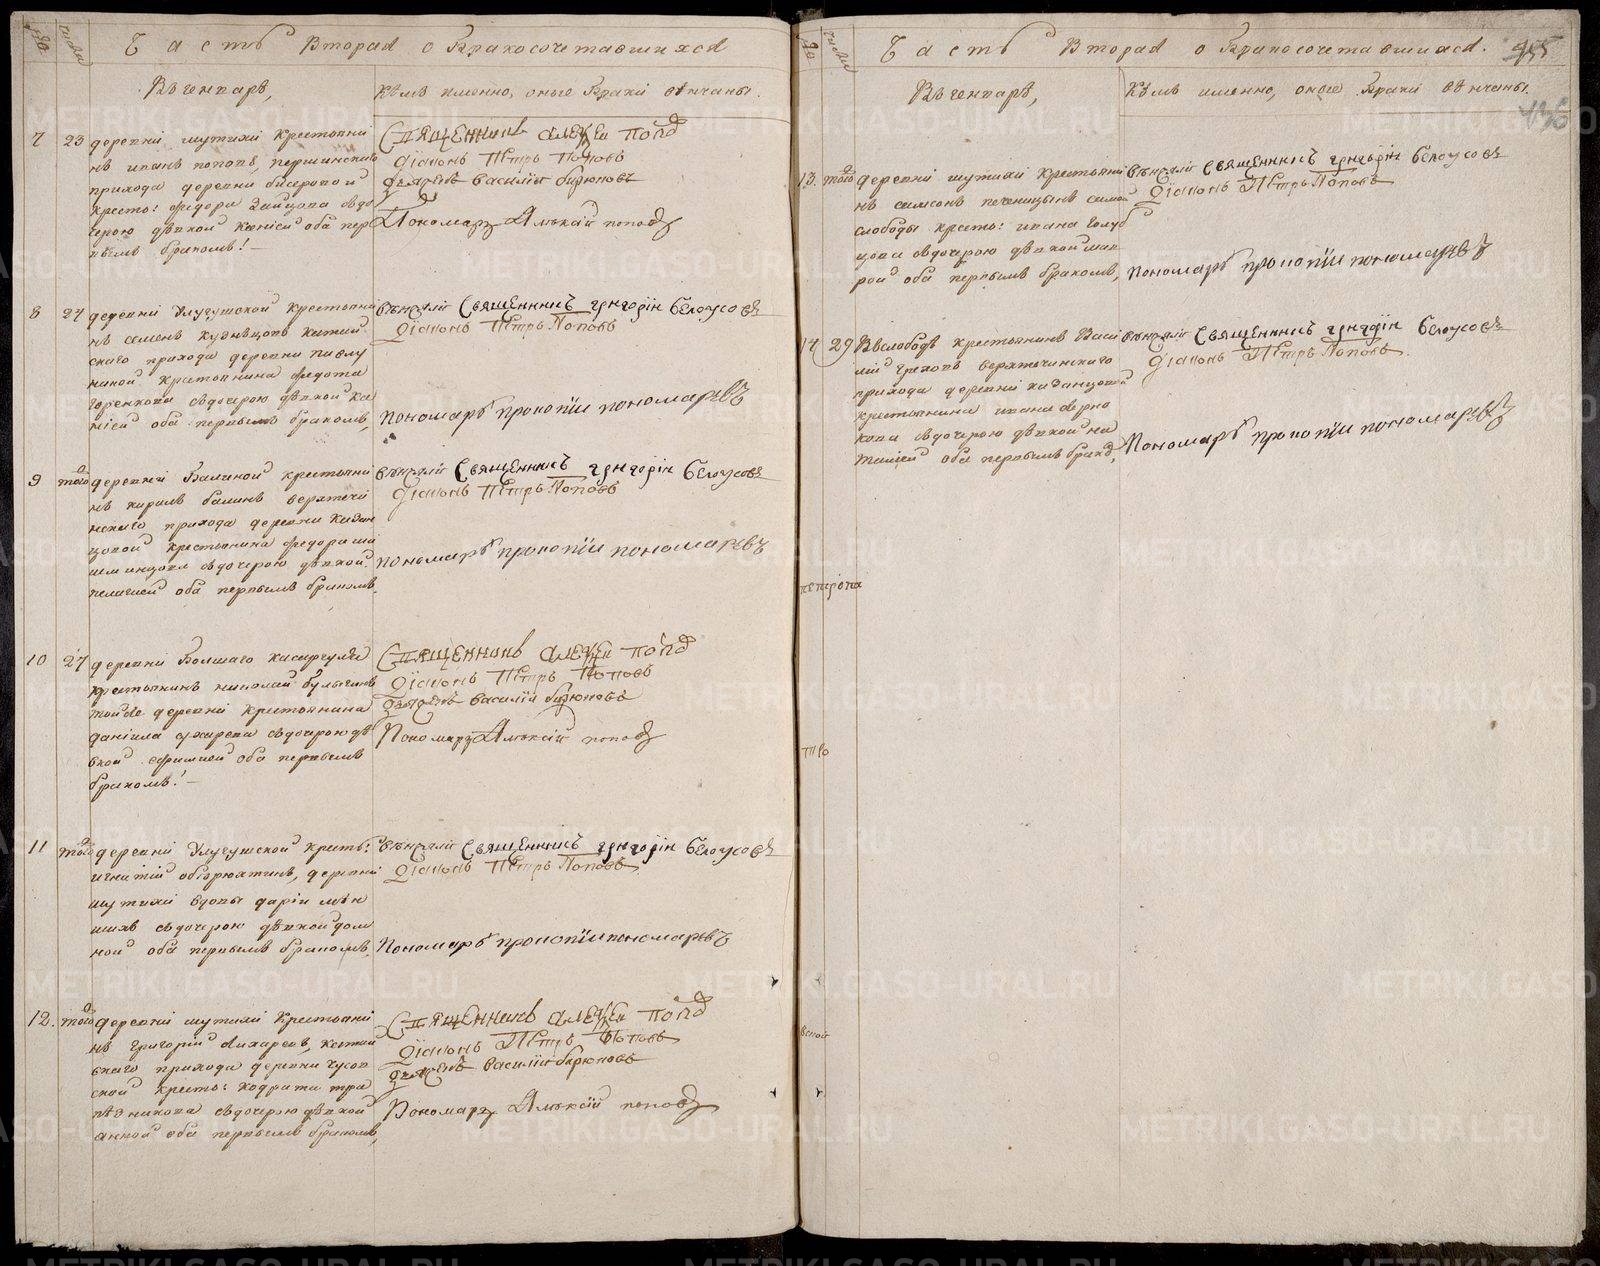 Часть Вторая о Бракосочетавшихся
№ числа
Въ генваре,
Кемъ именно, оные Браки венчаны.
7 23 деревни шутихи крестьяни
нъ иванъ поповъ, першинскаго
прихода деревни бисеровой
кресть: федора Зайцова здо
черою девкой Ксенiей оба пер
вымъ бракомъ!
Священникъ Алексей Поповъ
Дiаконъ Петръ Поповъ
дьячекъ Василiй бирюковъ
Пономарь Алексiй поповъ
8 24 деревни крестьяни
нъ семенъ
скаго прихода деревни
крестьянина федота
горенкова здочерою девкой
оба первымъ бракомъ,
венчали Священникъ григорiи белоусовъ
Дiаконъ Петръ Поповъ
Пономарь прокопiи пономаревъ
9 того деревни Балиной крестьяни
нъ кирилъ балинъ верхтечи
нскаго прихода деревни кызан
цовой крестьянина федора ши
шминцова здочерою девкой
пелагiей оба первымъ бракомъ
венчали Священникъ григорiи белоусовъ
Дiаконъ Петръ Поповъ
пономарь прокопiи пономаревъ
10 27 деревни Болшаго касаргуля
крестьянинъ николай булыгинъ
тойже деревни крестьянина
данiила сухарева здочерою де
вкой ефимiей оба первымъ
бракомъ!
Священникъ Алексеи Поповъ
Дiаконъ Петръ Поповъ
дьячекъ василiй бирюковъ
Пономарь Алексiй поповъ
11 того деревни кресть:
игнатiй деревни
шутихи вдовы дарiи
здочерою девкой дом
ной оба первымъ бракомъ,
венчали Священникъ григорiи белоусовъ
Дiаконъ Петръ Поповъ
Пономарь прокопiи пономаревъ
12. того деревни шутихи крестьяни
нъ григорiй лихаревъ,
скаго прихода деревни чусов
ской кресть: кодрата тра
пезникова здочерою девкой
анной оба первымъ бракомъ,
Священникъ Алексеи Поповъ
Дiаконъ Петръ Поповъ
дьячекъ василiи бирюковъ
Пономарь Алексiй поповъ
Часть Вторая о Бракосочетавшихся.
№ числа
Въ генваре,
Кемъ именно, оные Браки венчаны.
13. того деревни шутихи крестьяни
нъ самсонъ печеницынъ самой
слободы кресть: ивана голуб
цова здочерою девкой мав
рой оба первымъ бракомъ,
Венчали Священникъ григорiи белоусовъ
Дiаконъ Петръ Поповъ
пономарь прокопiи пономаревъ
14 29 Вслободе крестьянинъ Васи
лiй греховъ верхтечинскаго
прихода деревни кызанцовой
крестьянина ивана
кова здочерою девкой на
талiей оба первымъ брако,
Венчали Священникъ григорiи белоусовъ
Дiаконъ Петръ Поповъ.
Пономарь прокопiи пономаревъ
METRIKI.GASO-URAL.RU